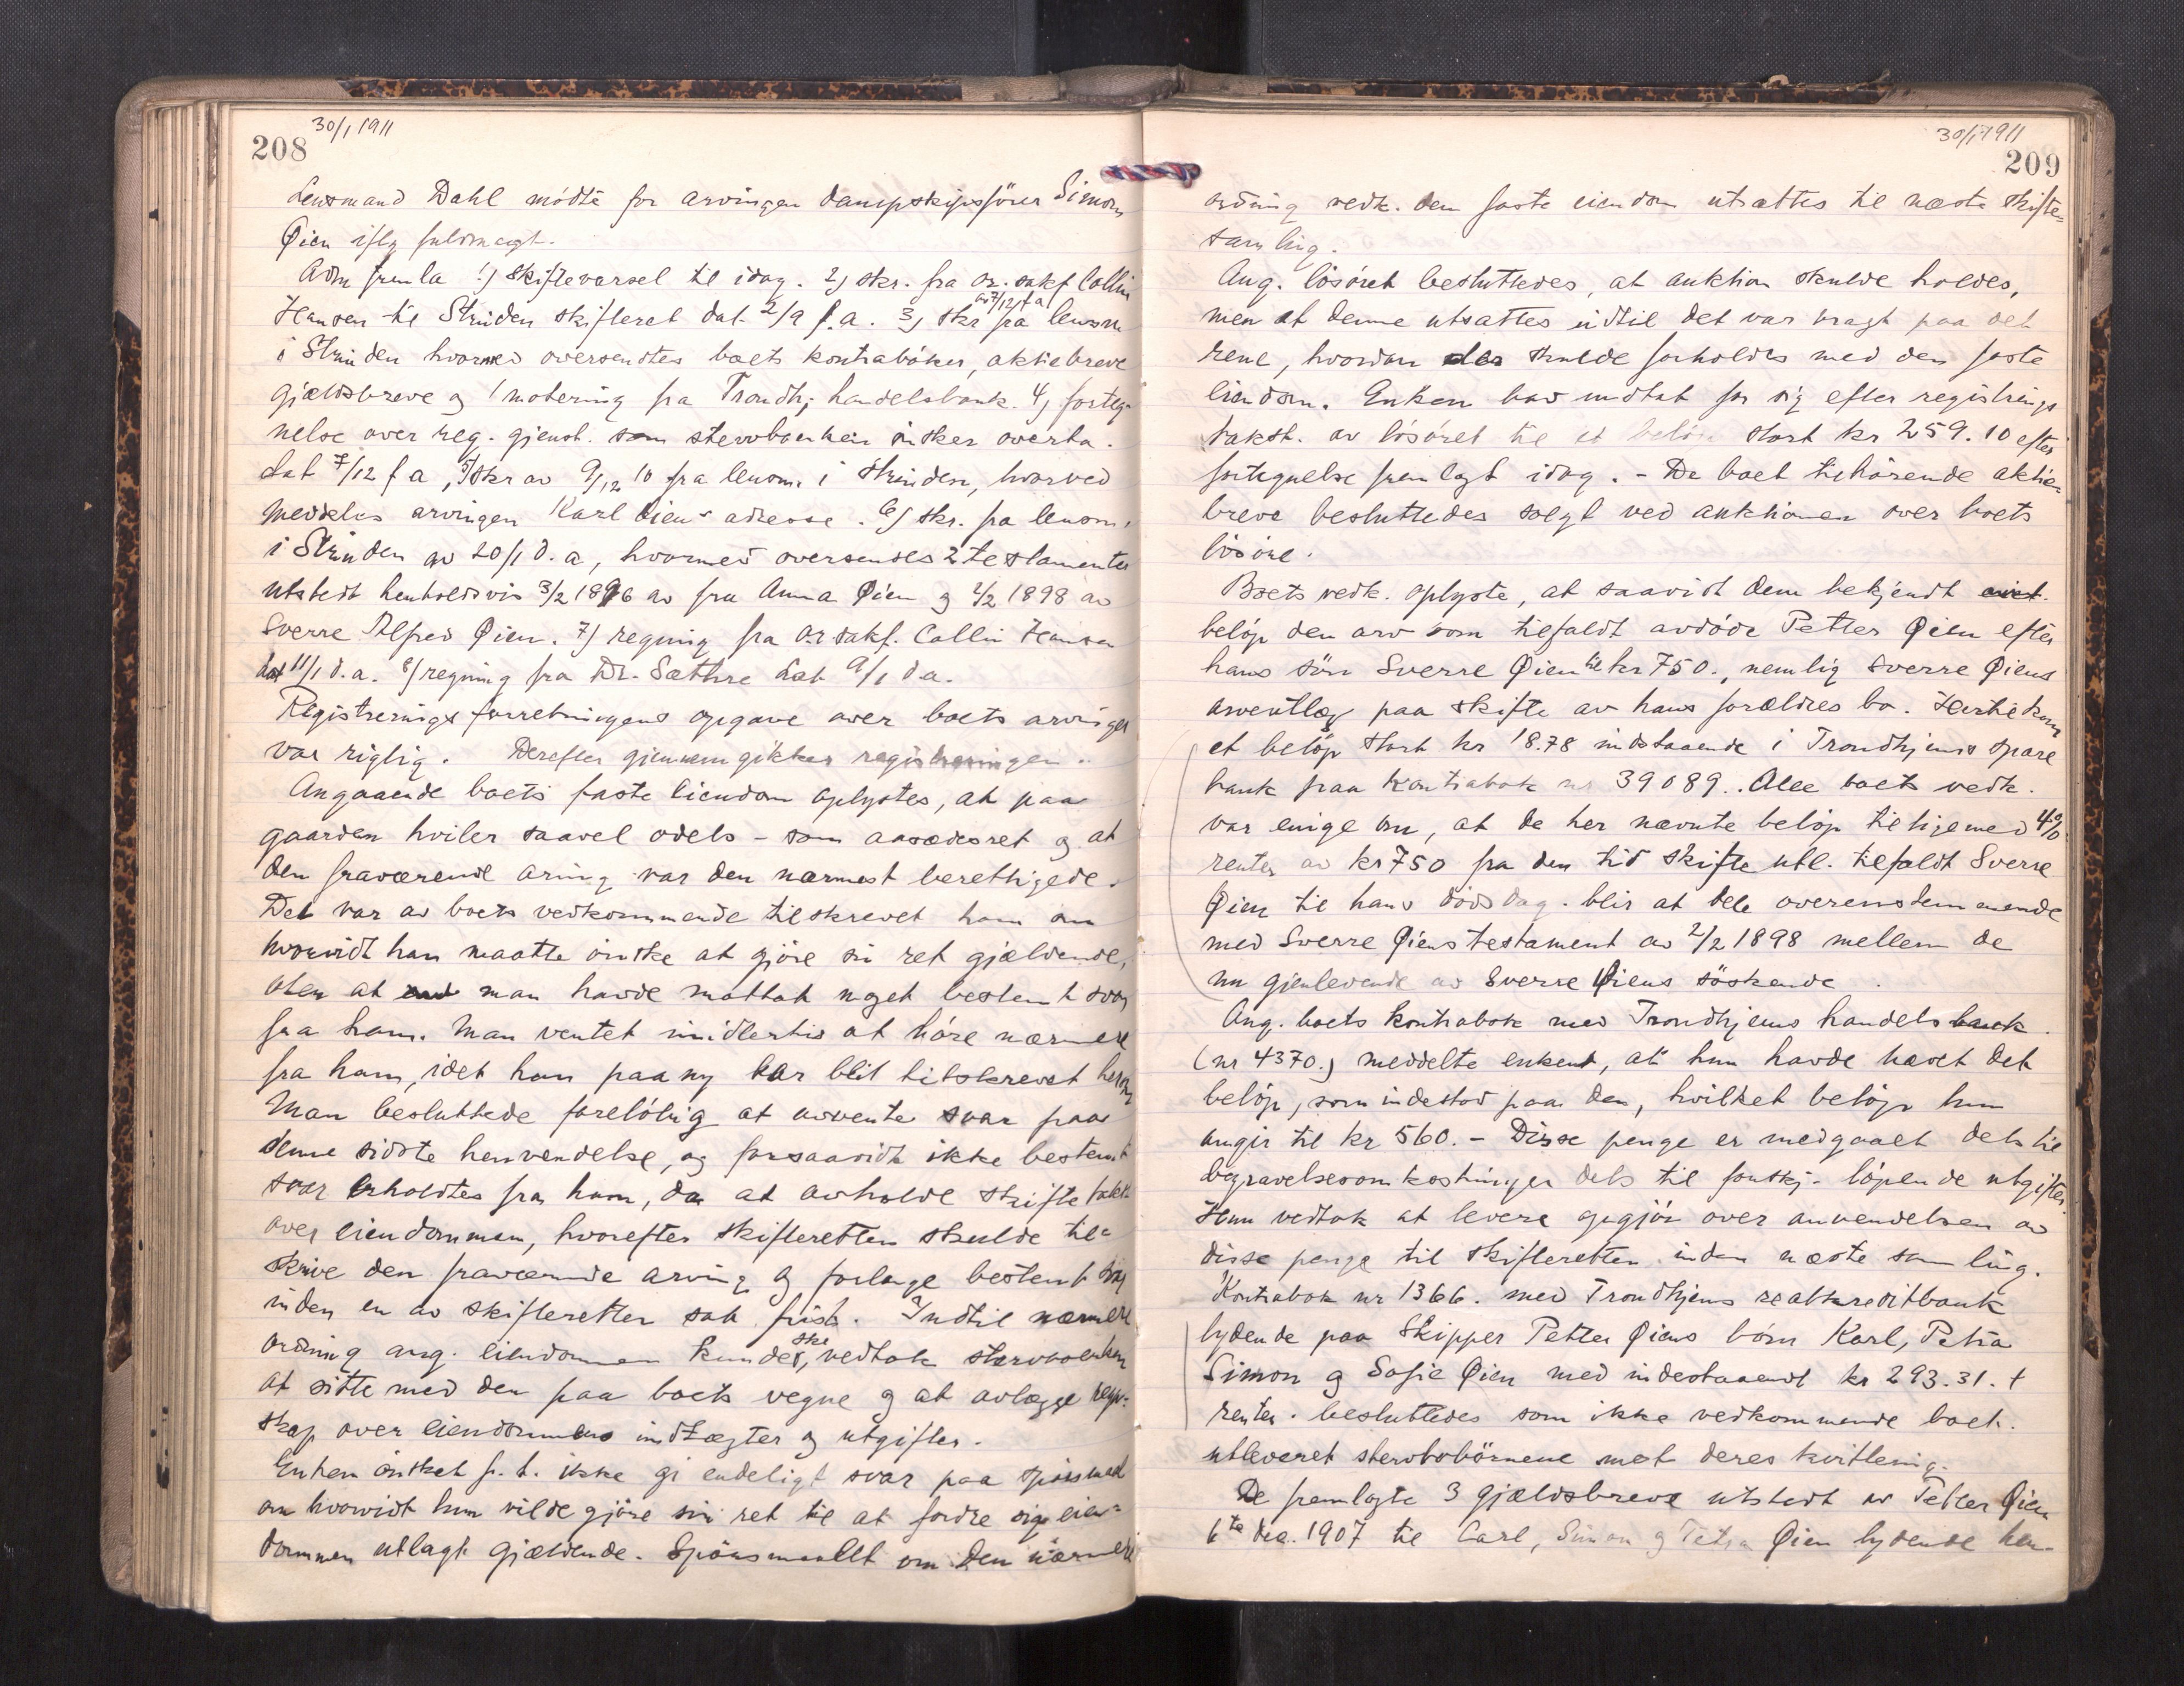 30/1 1911
208
Lensmand Dahl mödte for arvingen dampskipsförer Simon
Øien iflg fuldmagt.
Adm fremla 1) Skiftevarsel til idag. 2) skr. fra o.r. sakf Collin
Hansen til Strinden skifteret dat 2/9 f.a. 3) skr av 7/12 f a fra lensm
i Strinden hvormed oversendtes boets kontraböker, aktiebreve
gjældsbreve og 1 notering fra Trondhj handelsbank. 4) forteg-
nelse over reg. gjenst. som stervboenken önsker overta.
dat 7/12 f a, 5) skr av 9/12 10 fra lensm. i Strinden, hvorved
meddeles arvingen Karl Øiens adresse. 6) skr. fra lensm.
i Strinden av 20/1 d. a, hvormed oversendes 2 testamenter
utstedt henholdsvis 3/2 1896 av fru Anna Øien og 2/2 1898 av
Sverre Alfred Øien. 7) regning fra o.r sakf. Collin Hansen
dat 11/1 d.a. 8) regning fra Dr. Sæthre dat 9/1 d.a.
Registreringsforretningens opgave over boets arvinger
var rigtig. Derefter gjennemgikkes registreringen.
Angaaende boets faste eiendom oplystes, at paa
gaarden hviler saavel odels- som aasædesret og at
den fraværende arving var den nærmest berettigede.
Det var av boets vedkommende tilskrevet ham om
hvorvidt han maatte önske at gjöre sin ret gjældende,
uten at man havde mottat noget bestemt svar
fra ham. Man ventet imidlertid at höre nærmere
fra ham, idet han paany har blit tilskrevet herom
Man besluttede forelöbig at avvente svar paa
denne sidste henvendelse, og forsaavidt ikke bestemt
svar erholdtes fra ham, da at avholde skiftetakst
over eiendommen, hvorefter skifteretten skulde til-
skrive den fraværende arving og forlange bestemt svar
inden en av skifteretten sat frist. Indtil nærmere
ordning ang. eiendommen kunde ske, vedtok stervboenken
at sitte med den paa boets vegne og at avlægge regn-
skap over eiendommens indtægter og utgifter.
Enken önsket p.t. ikke gi endeligt svar paa spörsmaal
om hvorvidt hun vilde gjöre sin ret til at fordre sig eien-
dommen utlagt gjældende. Spörsmaalet om den nærmere
30/1 1911
209
ordning vedk. den faste eiendom utsattes til næste skifte-
samling.
Ang. lösöret besluttedes, at auktion skulde holdes,
men at denne utsattes indtil det var bragt paa det
rene, hvordan der skulde forholdes med den faste
eiendom. Enken har mottat for sig efter registrerings
takst. av lösöret til et belöp stort kr 259.10 efter
fortegnelse fremlagt idag. - De boet tilhörende aktie-
breve besluttedes solgt ved auktionen over boets
lösöre.
Boets vedk. oplyste, at saavidt dem bekjendt
belöp den arv som tilfaldt avdöde Petter Øien efter
hans sön Sverre Øien til kr 750., nemlig Sverre Øiens
arveutlæg paa skifte av hans forældres bo. Hertil kom
et belöp stort kr 18.78 indstaaende i Trondhjems spare
bank paa kontrabok nr 39089. Alle boets vedk.
var enige om, at de her nævnte belöp tillikemed 4%
renter av kr 750 fra den tid skifteutl. tilfaldt Sverre
Øien til hans dödsdag. blir at dele overensstemmende
med Sverre Øiens testament av 2/2 1898 mellem de
nu gjenlevende av Sverre Øiens söskende.
Ang. boets kontrabok med Trondhjems handelsbank.
(nr 4370.) meddelte enken, at hun havde hævet det
belöp, som indestod paa den, hvilket belöp hun
angir til kr 560. - Disse penge er medgaaet dels til
begravelsesomkostninger dels til forskj. löpende utgifter.
Hun vedtok at levere opgjör over anvendelsen av
disse penge til skifteretten inden næste samling.
Kontrabok nr 1366. med Trondhjems realkreditbank
lydende paa Skipper Petter Øiens börn Karl, Petra
Simon og Sofie Øien med indestaaende kr 293.31. +
renter. besluttedes som ikke vedkommende boet.
utleveret stervbobörnene mot deres kvittering.
De fremlagte 3 gjældsbreve utstedt av Petter Øien
6te dec. 1907 til Carl, Simon og Petra Øien lydende hen-